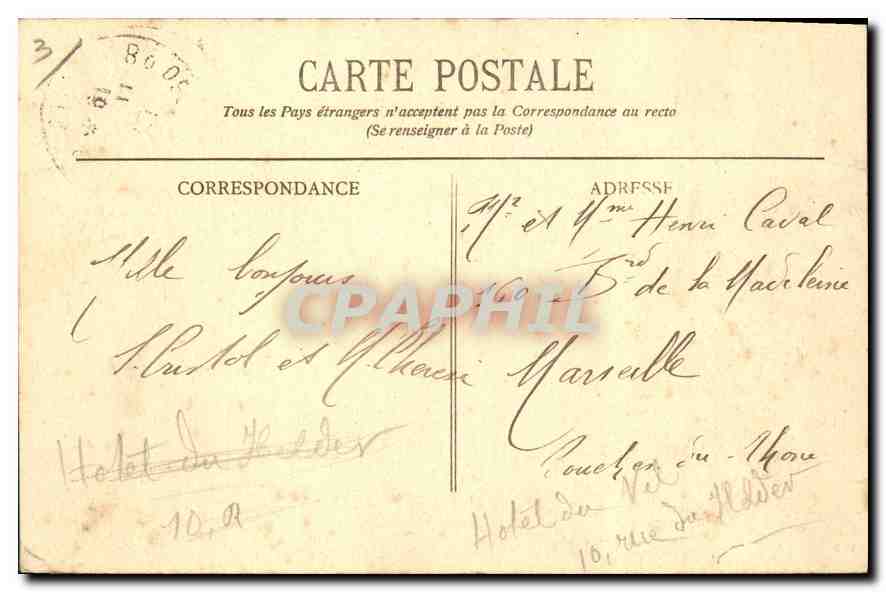 3/
CARTE POSTALE
Tous les Pays étrangers n'acceptent pas la Correspondance au recto
(Se renseigner à la Poste)
CORRESPONDANCE
Mille bonjours
et
Hotel du Helder
10, R
ADRESSE
Mr et Mme Henri Caval
160 Brd de la Madeleine
Marseille
Bouches du Rhone
Hotel du
10, rue du Helder
CPAPHIL